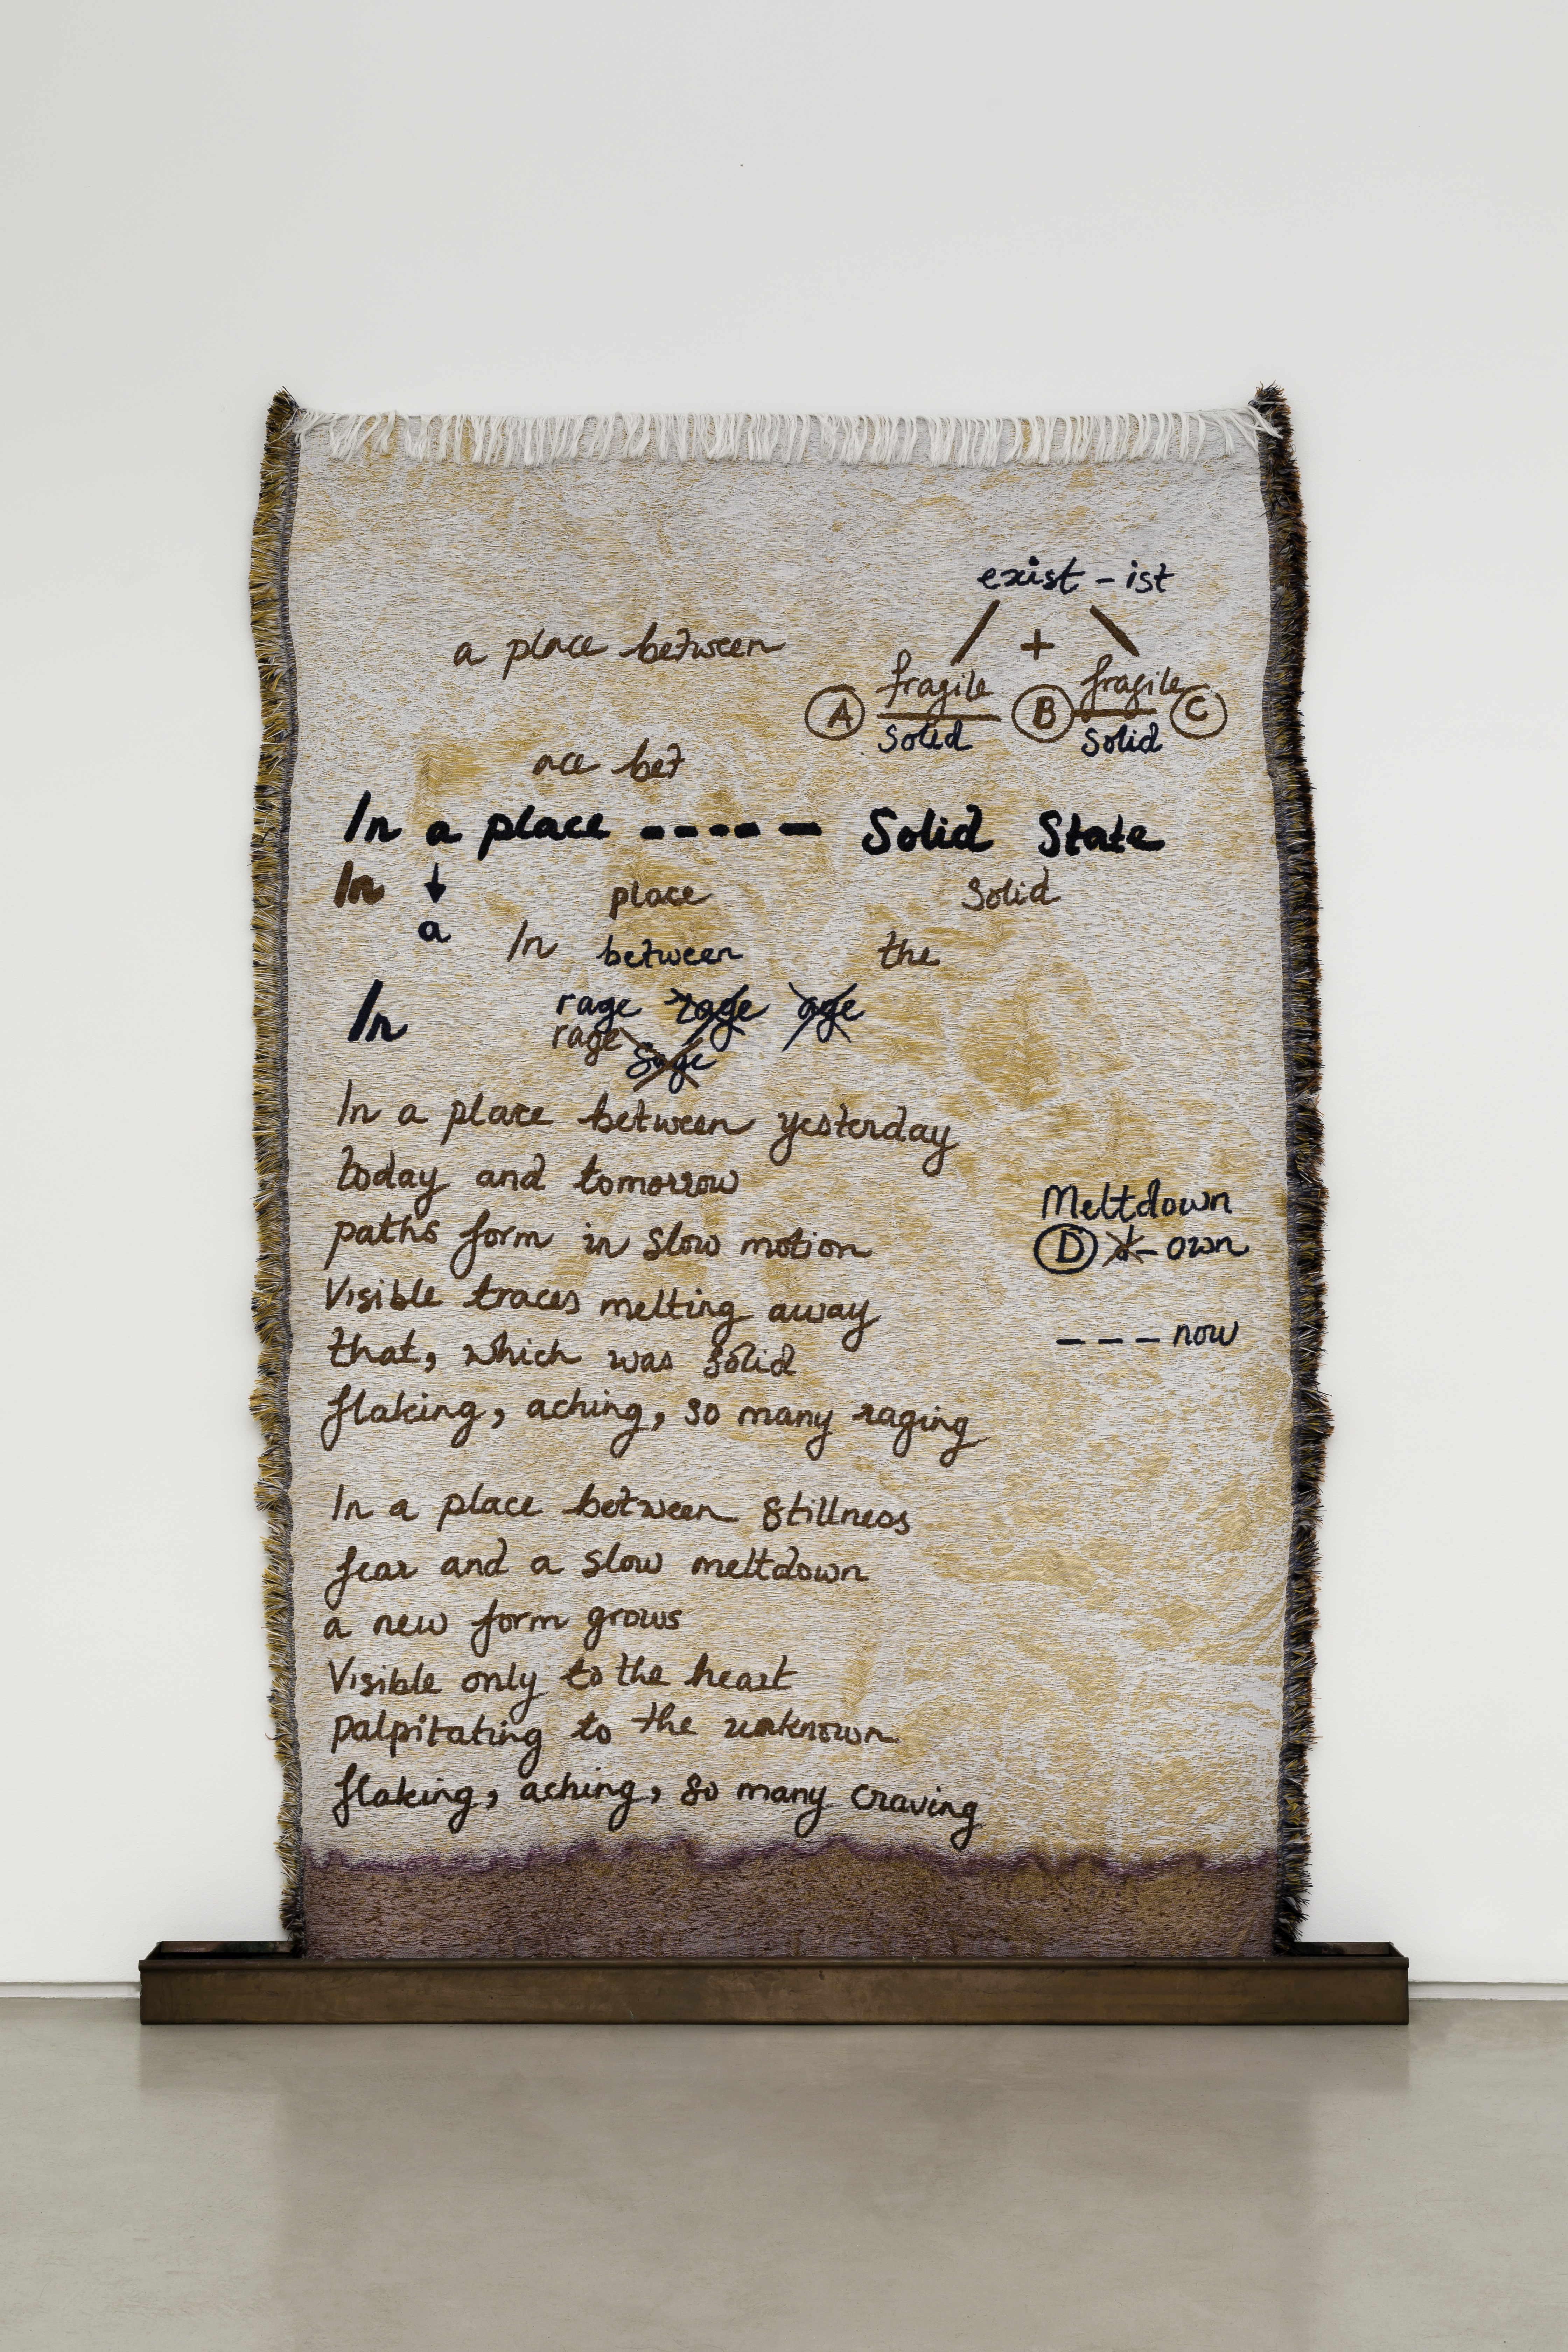 exist - ist
a place between
+
fragile fragile
A B C
solid solid
ace bet
In a place ----- Solid State
In ↓ place Solid
a In between the
In rage rage age
rage sage
In a place between yesterday
today and tomorrow
paths form in slow motion
Visible traces melting away
that, which was solid
flaking, aching, so many raging
Meltdown
D d- own
--- now
In a place between stillness
fear and a slow meltdown
a new form grows
Visible only to the heart
palpitating to the unknown
flaking, aching, so many craving